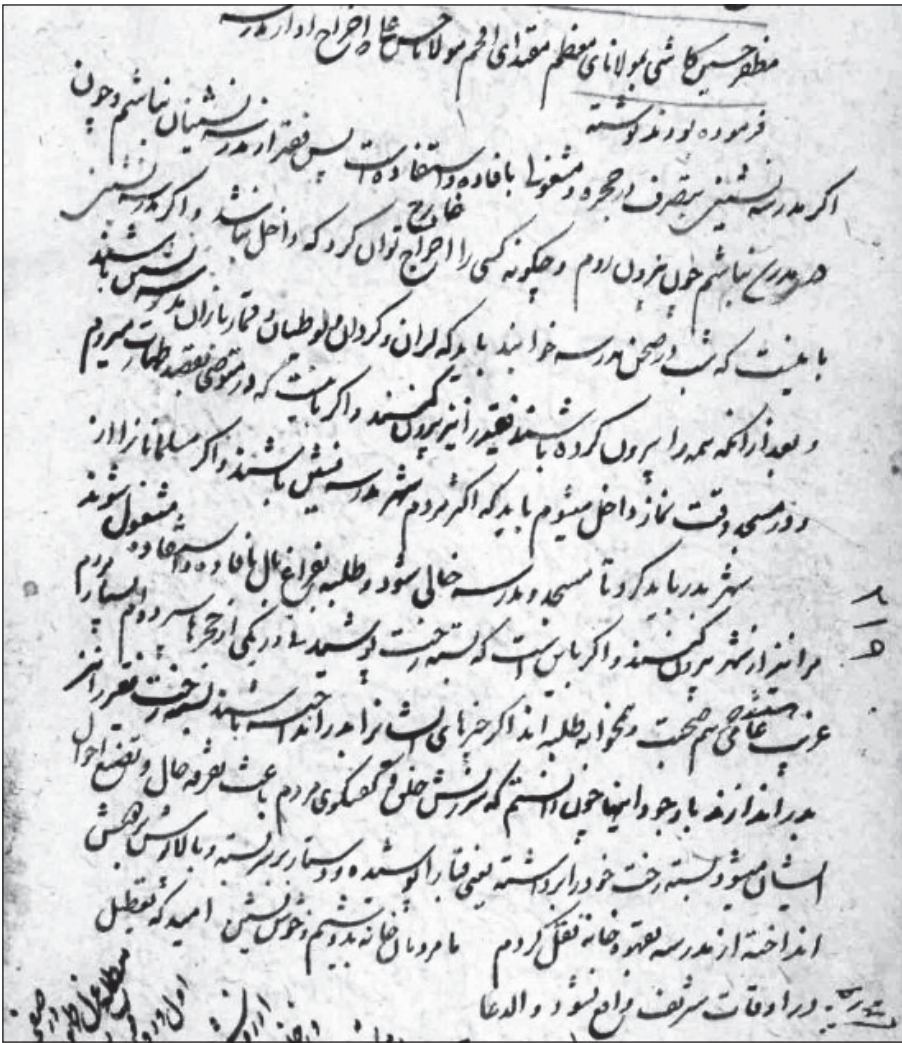 مظفر حسین کاشی بمولانای معظم مقتدای افخم مولانا حسن علی اخراج او از مدرسه
فرموده بودند نوشته
اگر مدرسه نشینی بتصرف در حجره و مشغولی با فاده و استفاده است پس فقیر از مدرسه نشینان نباشم و چون
در مدرسه نباشم چون بیرون روم و چگونه کسی را اخراج توان کرد که داخل نباشد و اگر مدرسه نشینی
خارج
باینست که شب در صحن مدرسه خوابند باید که لران و کردان و لوطیان و قماربازان مدرسه نشین باشند
و بعد از آنکه همه را بیرون کرده باشند فقیر را نیز بیرون کنند و اگر باینست که در متوضی بقصد طهارت میروم
و در مسجد وقت نماز داخل میشوم باید که اکثر مردم شهر مدرسه نشین باشند و اگر مسلمانانرا از
شهر بدر باید کرد تا مسجد و مدرسه خالی شود و طلبه بفراغ بال با فاده و استفاده مشغول شوند
مرا نیز از شهر بیرون کنند و اگر باین است که بسته رخت پوشیدنی در یکی از حجرها سپرده ام بسیار از مردم
غریب هم صحبت و همخوابه طلبه اند اگر چیزهای ایشانرا بدر انداخته باشند بسته رخت فقیر را نیز
بدر اندازند با وجود اینها چون دانستم که سرزنش خلق و گفتگوی مردم باعث تفرقه حال و تضییع احوال
ایشان میشود بسته رخت خود را برداشته یعنی قبا را پوشیده و دستار بر سر بسته و بالاپوش بر دوش
انداخته از مدرسه بقهوه خانه نقل کردم ما مردمان خانه بدوشیم و خوش نشین امید که تعطیل
در اوقات شریف واقع نشود و الدعا
۲۱۹